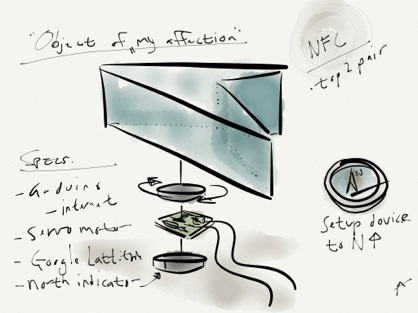 "Object of my affection"
NFC
· tap 2 pair
Specs.
- Arduino
- internet
- Servo motor
- Google Lattitude
- North indicator
N
Setup device
to N ↑